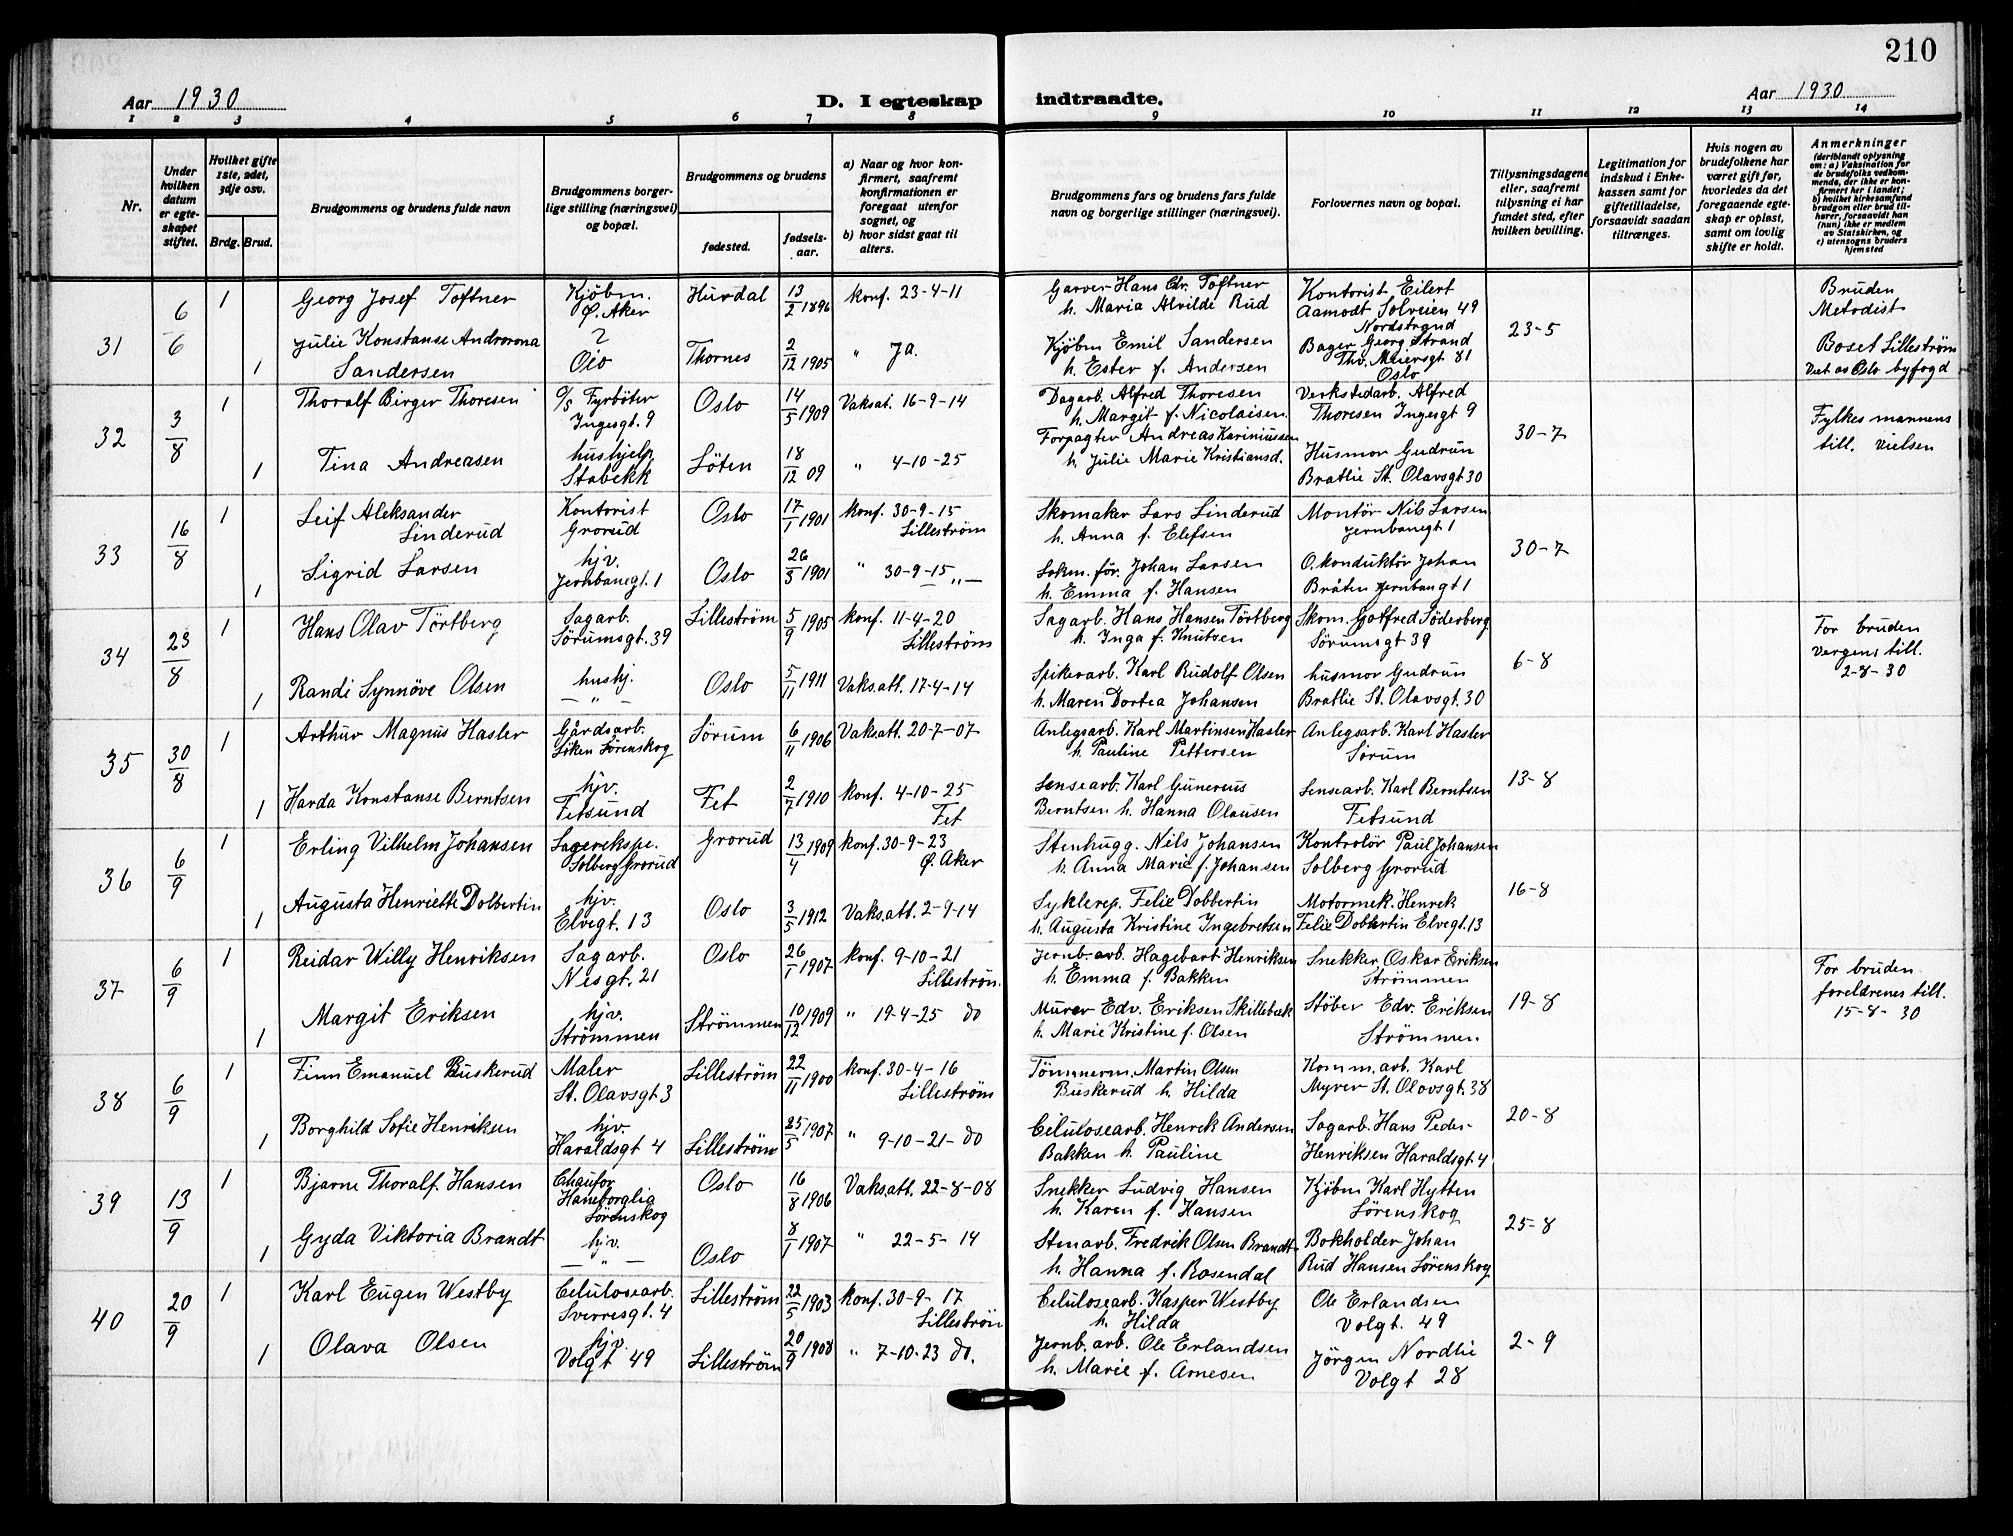 210
Aar 1930
D. I egteskap indtraadte.
Aar 1930
1 2 3 4 5 6 7 8 9 10 11 12 13 14
Nr.
Under hvilken datum er egteskapet stiftet.
Hvilket gifte 1ste, 2det, 3dje osv.
Brdg. Brud.
Brudgommens og brudens fulde navn
Brudgommens borgerlige stilling (næringsvei) og bopæl.
Brudgommens og brudens
fødested.
fødselsaar.
a) Naar og hvor konfirmert, saafremt konfirmationen er foregaat utenfor sognet, og
b) hvor sidst gaat til alters.
Brudgommens fars og brudens fars fulde navn og borgerlige stillinger (næringsvei).
Forlovernes navn og bopæl.
Tillysningsdagene eller, saafremt tillysning ei har fundet sted, efter hvilken bevilling.
Legitimation for indskud i Enkekassen samt for giftetilladelse, forsaavidt saadan tiltrænges.
Hvis nogen av brudefolkene har været gift før, hvorledes da det foregaaende egteskap er opløst, samt om lovlig skifte er holdt.
Anmerkninger
(deriblandt oplysning om: a) Vaksination for de brudefolks vedkommende, der ikke er konfirmert her i landet; b) hvilket kirkesamfund brudgom eller brud tilhører, forsaavidt han (hun) ikke er medlem av Statskirken, og c) utensogns bruders hjemsted
31 6/6 1 Georg Josef Toftner Kjøbm. Ø. Aker Hurdal 13/2 1896 konf. 23-4-11 Garver Hans Chr. Toftner h. Maria Alvilde Rud Kontorist Eilert Aamodt Solveien 49 Nordstrand 23-5 Bruden Metodist
1 Julie Konstanse Sandersen Thornes 2/12 1905 " Ja. Kjøbm Emil Sandersen h. Ester f. Andersen Bager Georg Strand Thv. Meiersgt 81 Oslo Boset Lilleström Viet av Oslo byfogd
32 3/8 1 Thoralf Birger Thoresen Fyrbøter Ingesgt. 9 Oslo 14/5 1909 Vaksat. 16-9-14 Dagarb. Alfred Thoresen h. Margit f. Nicolaisen. Verkstedarb. Alfred Thoresen Ingesgt 9 30-7 Fylkesmannens till. vielsen
1 Tina Andreasen hushjelp Stabekk Löten 18/12 09 " 4-10-25 Forpagter Andreas Kariniussen h. Julie Marie Kristiansd. Husmor Gudrun Bratlie St. Olavsgt 30
33 16/8 1 Leif Aleksander Linderud Kontorist Grorud Oslo 17/1 1901 konf. 30-9-15 Lilleström Skomaker Lars Linderud h. Anna f. Elefsen Montör Nils Larsen Jernbanegt 1 30-7
1 Sigrid Larsen hjv. Jernbanegt. 1 Oslo 26/3 1901 " 30-9-15 — " — Lokm. før. Johan Larsen h. Emma f. Hansen O. konduktör Johan Bråten Jernbangt 1
34 23/8 1 Hans Olav Törtberg Sagarb. Sörumsgt. 39 Lilleström 5/9 1905 konf. 11-4-20 Lilleström Sagarb. Hans Hansen Törtberg h. Inga f. Knutsen Skom. Gotfred Söderberg Sörumsgt 39 6-8 For bruden vergens till. 2-8-30
1 Randi Synnöve Olsen hushj. — " — Oslo 5/11 1911 Vaks.att. 17-4-14 Spikerarb. Karl Rudolf Olsen h. Maren Dortea Johansen husmor Gudrun Bratlie St. Olavsgt. 30
35 30/8 1 Arthur Magnus Hasler Gårdsarb. Liken Lörenskog Sörum 6/11 1906 Vaksatt. 20-7-07 Anlegsarb. Karl Martinsen Hasler h. Pauline Pettersen Anlegsarb. Karl Hasler Sörum 13-8
1 Harda Konstanse Berntsen hjv. Fetsund Fet 2/7 1910 konf. 4-10-25 Fet Lensearb. Karl Gunerius Berntsen h. Hanna Olausen Lensearb. Karl Berntsen Fetsund
36 6/9 1 Erling Vilhelm Johansen Solberg Grorud Grorud 13/4 1909 konf. 30-9-23 Ø. Aker Stenhugg. Nils Johansen h. Anna Marie f. Johansen Kontrolör Paul Johansen Solberg Grorud 16-8
1 Augusta Henriette Dolbertin hjv. Elvegt. 13 Oslo 3/5 1912 Vaks.att. 2-9-14 Syklerep. Felix Dobbertin h. Augusta Kristine Ingebretsen Motormek. Henrik Felix Dobbertin Elvegt. 13
37 6/9 1 Reidar Willy Henriksen Sagarb. Nesgt. 21 Oslo 26/1 1907 konf. 9-10-21 Lilleström. Jernb. arb. Hagebart Henriksen h. Emma f. Bakken Snekker Oskar Eriksen Strömmen 19-8 For bruden foreldrenes till. 15-8-30
1 Margit Eriksen hjv. Strömmen Strömmen 10/12 1909 " 19-4-25 do Murer Edv. Eriksen Skillebæk h. Marie Kristine f. Olsen Stöber Edv. Eriksen Strömmen.
38 6/9 1 Finn Emanuel Buskerud Maler St. Olavsgt 3 Lilleström 22/11 1900 konf. 30-4-16 Lilleström Tömmerm. Martin Olsen Buskerud h. Hilda Komm. arb. Karl Myrer St. Olavsgt. 38 20-8
1 Borghild Sofie Henriksen hjv. Haraldsgt 4 Lilleström 25/5 1907 " 9-10-21- do Celulosearb. Henrik Andersen Bakken h. Pauline Sagarb. Hans Peder Henriksen Haraldsgt. 4
39 13/9 1 Bjarne Thoralf. Hansen Chauför Haneborglia Lörenskog Oslo 16/8 1906 Vaks.att. 22-8-08 Snekker Ludvig Hansen h. Karen f. Hansen Kjöbm Karl Hytten Lörenskog 25-8
1 Gyda Viktoria Brandt hjv. — " — Oslo 8/1 1907 " 22-5-14 Stenarb. Fredrik Olsen Brandt h. Hanna f. Rosendal Bokholder Johan Rud Hansen Lörenskog
40 20/9 1 Karl Eugen Westby Celulosearb. Sverresgt. 4 Lilleström 22/5 1903 konf. 30-9-17 Lilleström Celulosearb. Kasper Westby h. Hilda Ole Erlandsen Volgt. 49 2-9
1 Olava Olsen hjv. Volgt 49 Lilleström 20/9 1908 " 7-10-23 do. Jernb. arb. Ole Erlandsen h. Marie f. Arnesen Jörgen Nordlie Volgt 28